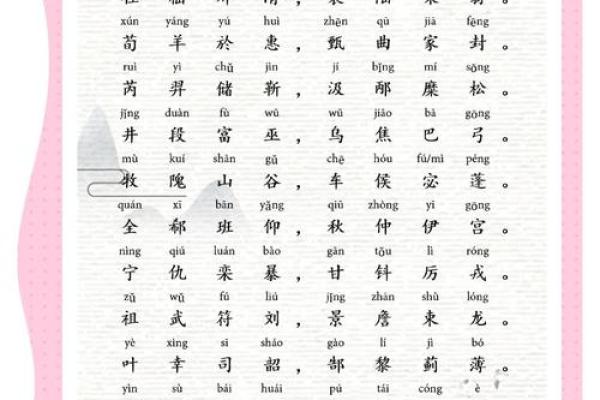 xún yáng yú huì zhēn qū jiā fēng
荀羊於惠，甄曲家封。
ruì yì chǔ jìn jí bǐng mí sōng
芮羿储靳，汲邴糜松。
jǐng duàn fù wū wū jiāo bā gōng
井段富巫，乌焦巴弓。
mù kuí shān gǔ chē hóu fú/mì péng
牧隗山谷，车侯宓蓬。
quán xī bān yǎng qiū zhòng yī gōng
全郗班仰，秋仲伊宫。
nìng qiú luán bào gān tǒu lì róng
宁仇栾暴，甘钭厉戎。
zǔ wǔ fú liú jǐng zhān shù lóng
祖武符刘，景詹束龙。
yè xìng sī sháo gào lí jì bó
叶幸司韶，郜黎蓟薄。
yìn sù bái huái pú tái cóng è